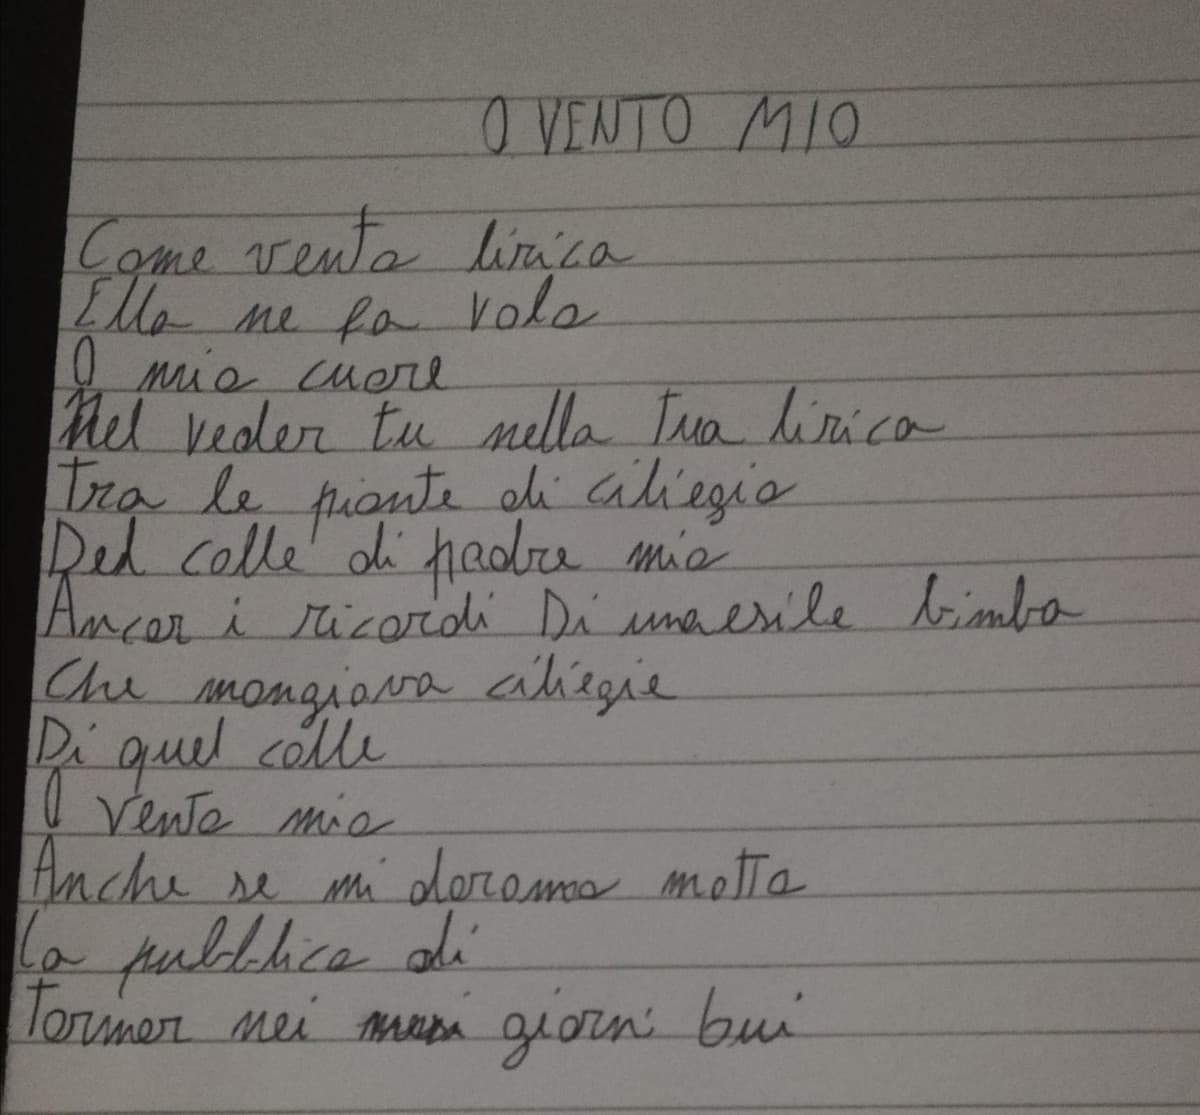 O VENTO MIO
Come vento lirica
Ella ne fa volo
O mio cuore
Nel veder tu nella tua lirica
Tra le piante di ciliegio
Del colle di padre mio
Ancor i ricordi Di una esile bimba
Che mangiava ciliegie
Di quel colle
O vento mio
Anche se mi motto
La pubblico di
Tormer nei giorni bui